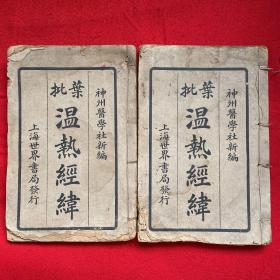 神州醫學社新編
葉批
溫熱經緯
上海世界書局發行
神州醫學社新編
葉批
溫熱經緯
上海世界書局發行